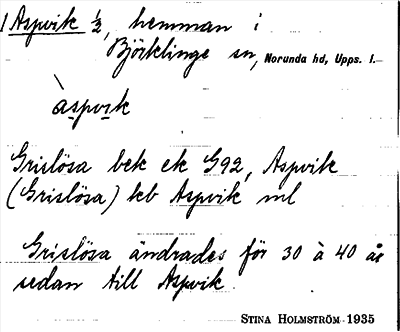 1 Aspvik ½, hemman i
Björklinge sn, Norunda hd, Upps. l.
àspvik
Grislösa bek ek G92, Aspvik
(Grislösa) kb Aspvik ml
Grislösa ändrades för 30 à 40 år
sedan till Aspvik.
STINA HOLMSTRÖM 1935